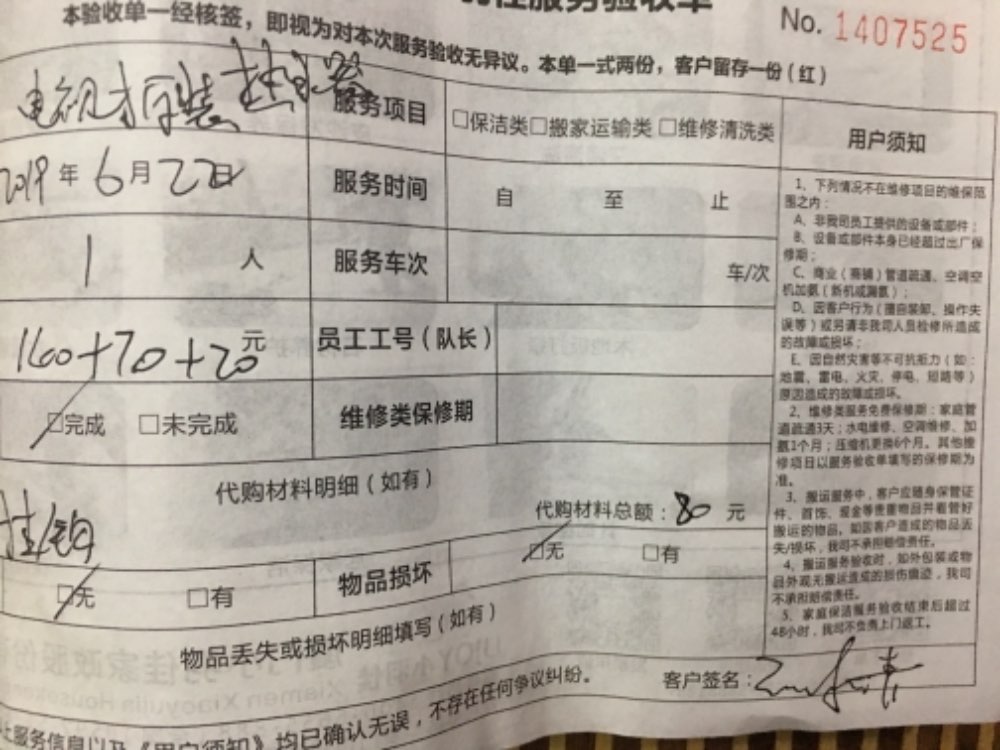 服务验收单
No. 1407525
本验收单一经核签，即视为对本次服务验收无异议。本单一式两份，客户留存一份（红）
电视拆装 热水器 服务项目 □保洁类□搬家运输类 □维修清洗类
2019 年 6 月 22日 服务时间 自 至 止
1 人 服务车次 车/次
160+70+20 元 员工工号（队长）
□完成 □未完成 维修类保修期
代购材料明细（如有）
代购材料总额：80 元
挂钩
□无 □有 物品损坏 □无 □有
物品丢失或损坏明细填写（如有）
用户须知
1、下列情况不在维修项目的维保范
围之内：
A、非我司员工提供的设备或部件；
B、设备或部件本身已经超过出厂保
修期；
C、商业（商铺）管道疏通、空调空
机加氨（新机或漏氨）；
D、因客户行为（擅自装卸、操作失
误等）或另请非我司人员检修所造成
的故障或损坏；
E、因自然灾害等不可抗拒力（如：
地震、雷电、火灾、停电、短路等）
原因造成的故障或损坏。
2、维修类服务免费保修期：家庭管
道疏通3天；水电维修、空调维修、加
氨1个月；压缩机更换6个月。其他维
修项目以服务验收单填写的保修期为
准。
3、搬运服务中，客户应随身保管证
件、首饰、现金等贵重物品并看管好
搬运的物品，如因客户造成的物品丢
失/损坏，我司不承担赔偿责任。
4、搬运服务验收时，如外包装或物
品外观无搬运造成的损伤痕迹，我司
不承担赔偿责任。
5、家庭保洁服务验收结束后超过
48小时，我司不负责上门返工。
客户签名：
上服务信息以及《用户须知》均已确认无误，不存在任何争议纠纷。